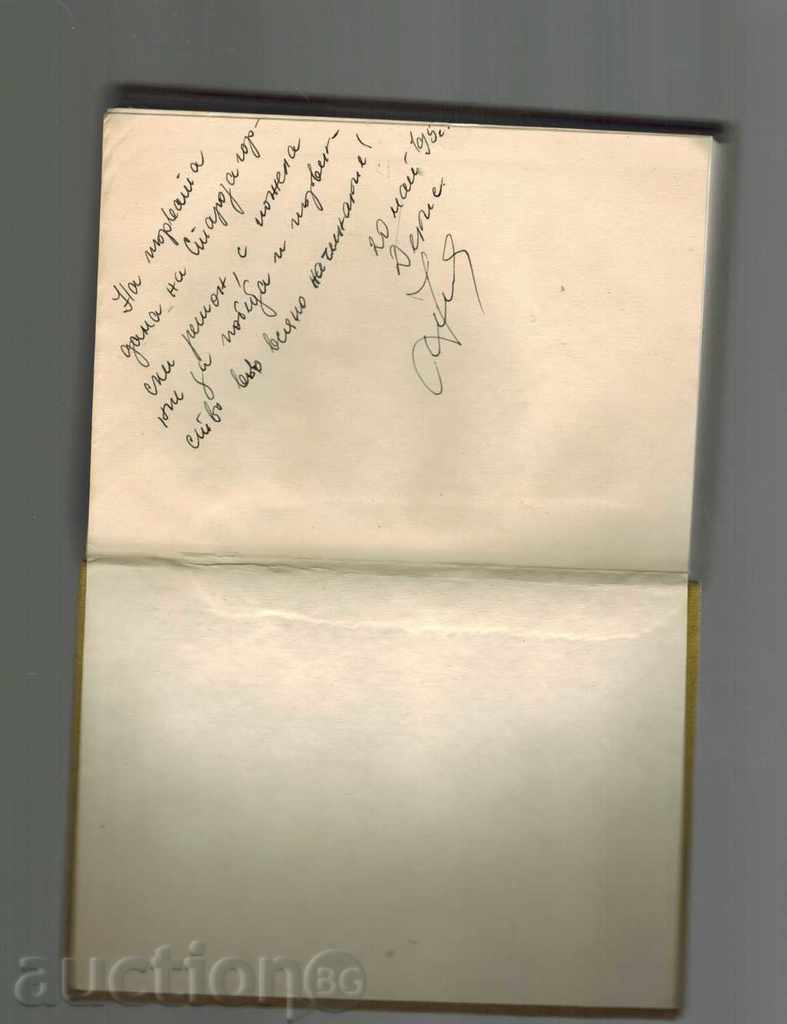 На първата
дама на Старозагор-
ски регион, с пожела
ние за победа и първен-
ство във всяко начинание!
20 май 95 г.
auctionBG